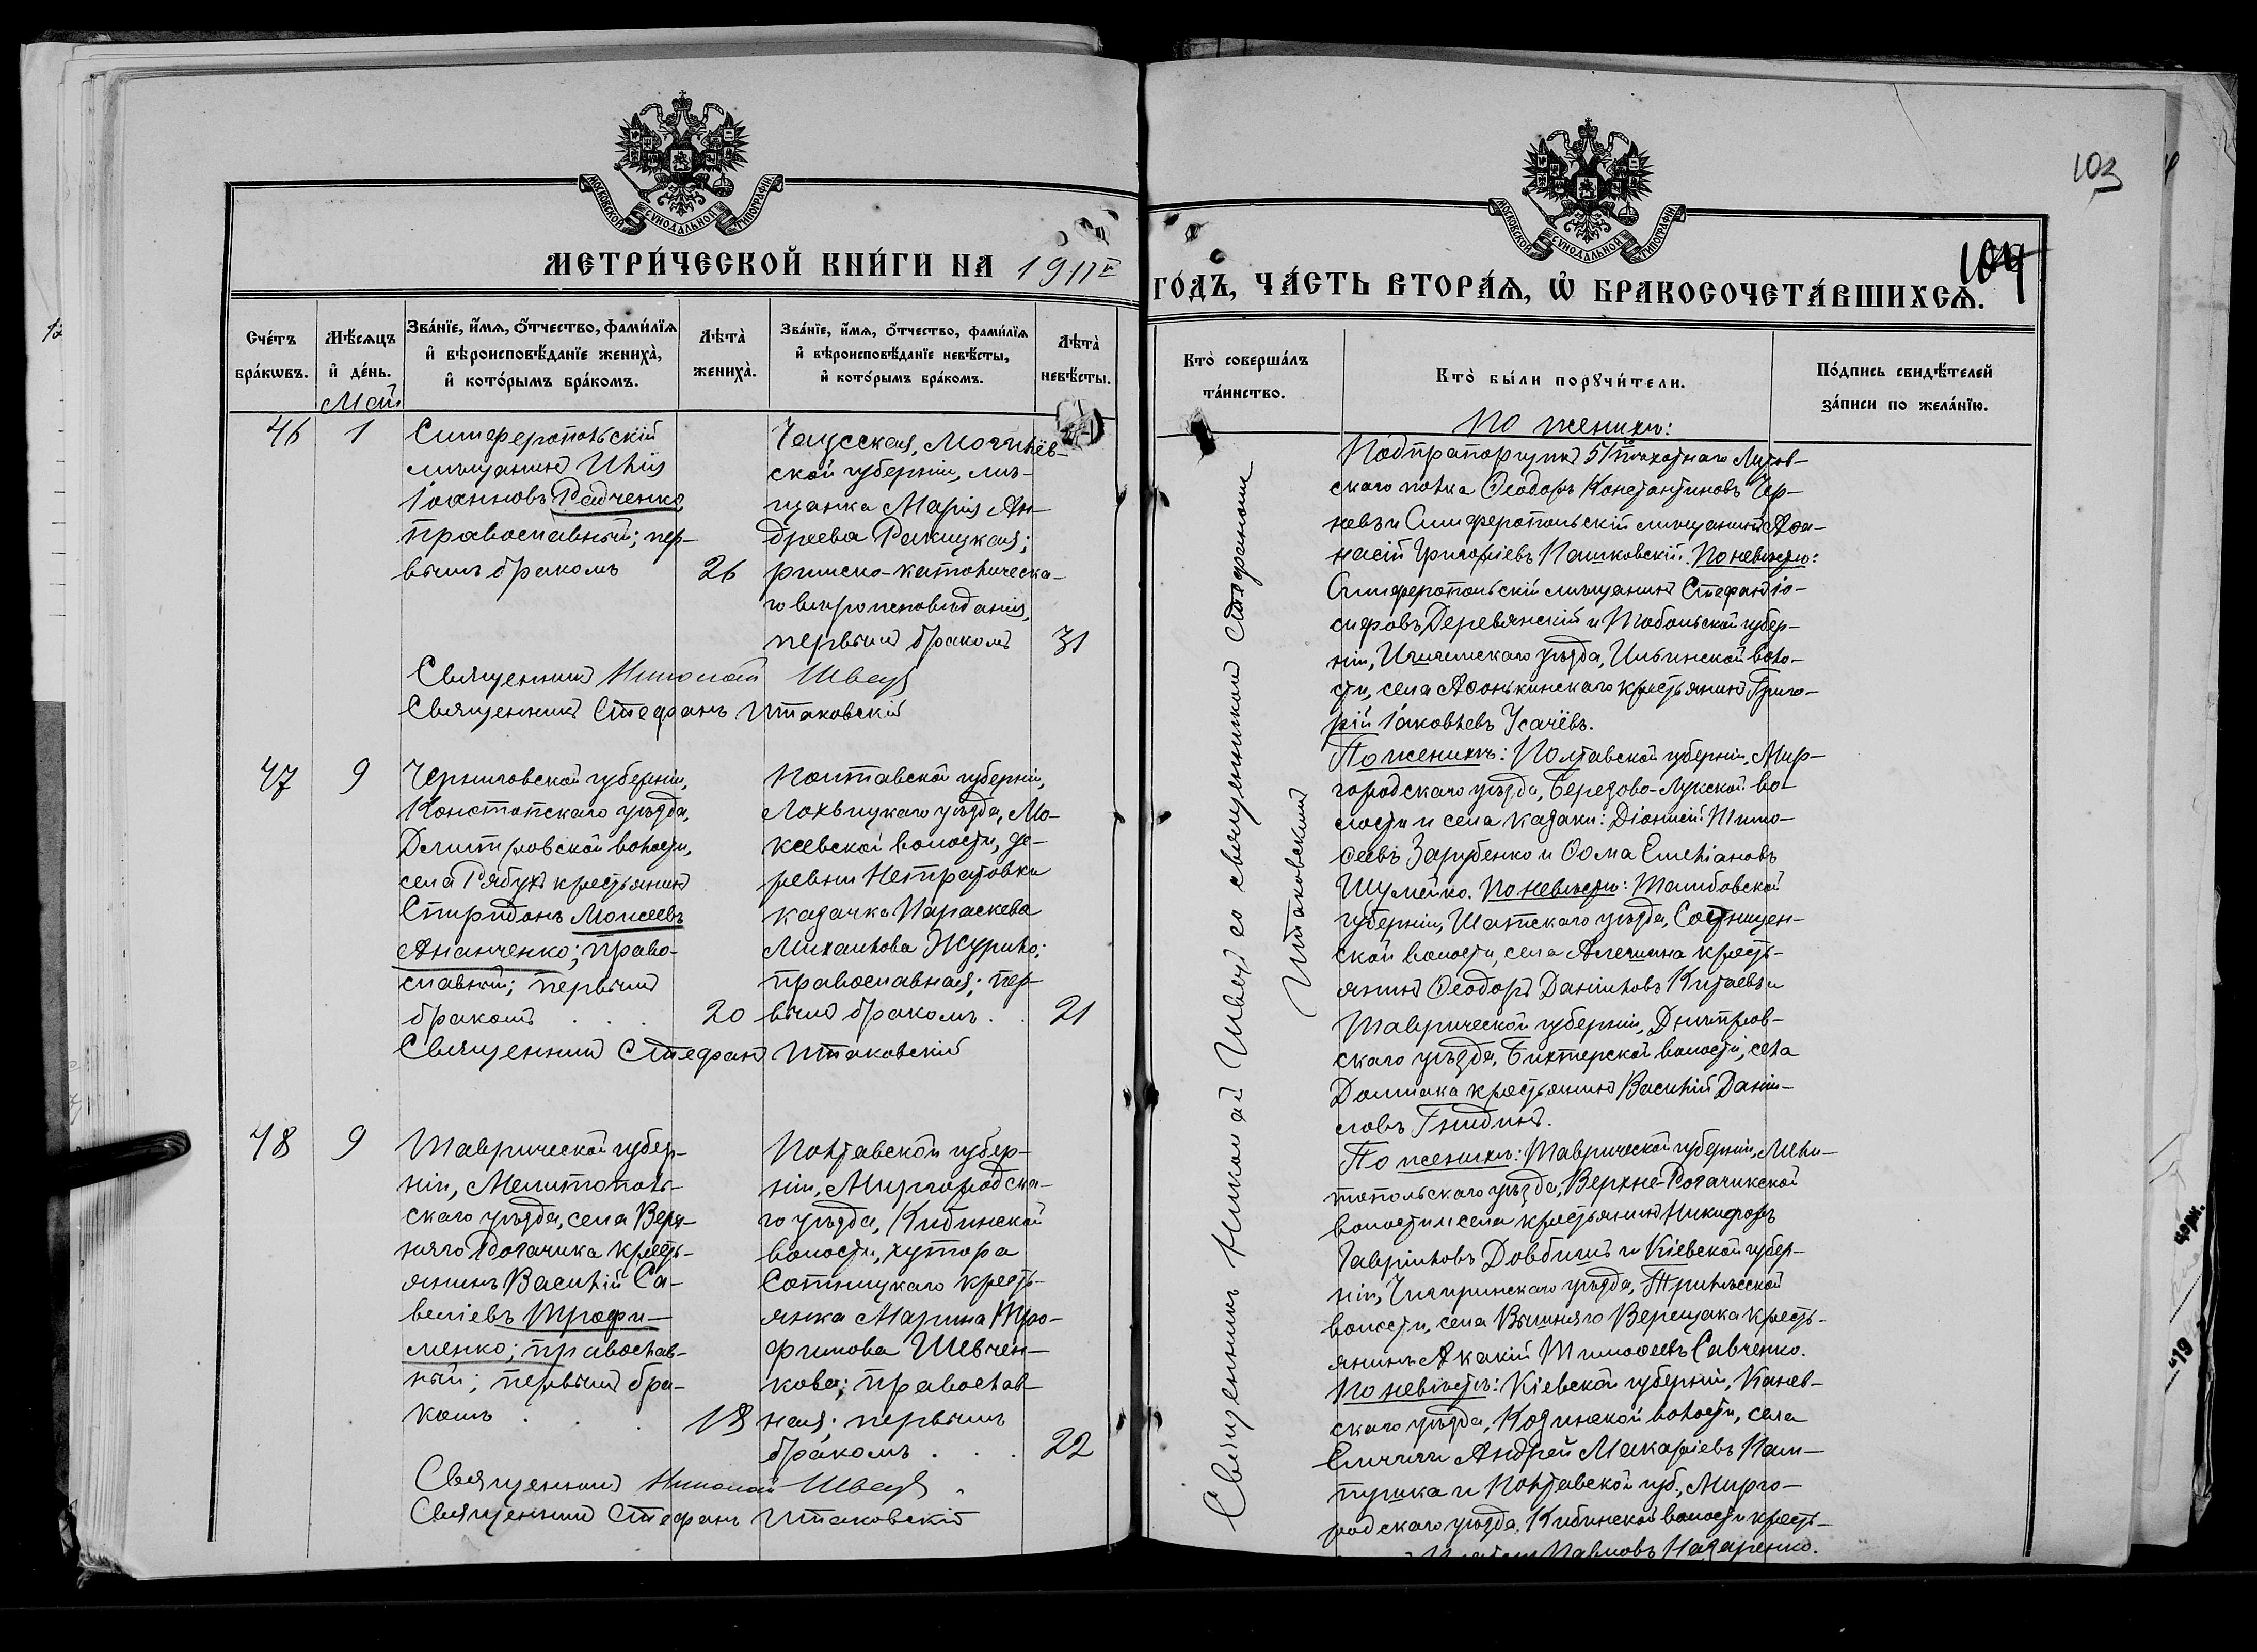 103
104
МОСКОВСКОЙ СѴНОДАЛЬНОЙ ТИПОГРАФІИ.
МЕТРИ́ЧЕСКОЙ КНИ́ГИ НА 1911й
Сче́тъ бра́кѡвъ.
Мѣ́сяцъ и҆ де́нь.
Зва́нїе, и҆́мя, ѻ҆́тчество, фами́лїя
и҆ вѣроисповѣ́данїе жениха̀,
и҆ кото́рымъ бра́комъ.
Лѣта̀ жениха̀.
Зва́нїе, и҆́мя, ѻ҆́тчество, фами́лїя
и҆ вѣроисповѣ́данїе невѣ́сты,
и҆ кото́рымъ бра́комъ.
Лѣта̀ невѣ́сты.
Май
46
1
Симферопольскій
мѣщанинъ Илія
Іоанновъ Радченко,
православный; пер-
вымъ бракомъ
26
Чаусская, Могилёв-
ской губерніи, мѣ-
щанка Марія Ан-
дреева Ракицкая;
римско-католическа-
го вѣроисповѣданія,
первымъ бракомъ
31
Священникъ Николай Швецъ
Священникъ Стефанъ Штаковскій
47
9
Черниговской губерніи,
Конотопскаго уѣзда,
Дмитровской волости,
села Рябухъ крестьянинъ
Спиридонъ Моисеевъ
Ананченко; право-
славный; первымъ
бракомъ . . .
20
Полтавской губерніи,
Лохвицкаго уѣзда, Мо-
кеевской волости, де-
ревни Нетратовки
казачка Параскева
Михаилова Журило;
православная; пер-
вымъ бракомъ . .
21
Священникъ Стефанъ Штаковскій
48
9
Таврической губер-
ніи, Мелитополь-
скаго уѣзда, села Верх-
няго Рогачика кресть-
янинъ Василій Са-
веліевъ Трофи-
менко; православ-
ный; первымъ бра-
комъ . . .
18
Полтавской губер-
ніи, Миргородска-
го уѣзда, Кибинской
волости, хутора
Сотницкаго кресть-
янка Марина Тро-
фимова Шевчен-
кова; православ-
ная; первымъ
бракомъ . . .
22
Священникъ Николай Швецъ.
Священникъ Стефанъ Штаковскій
МОСКОВСКОЙ СѴНОДАЛЬНОЙ ТИПОГРАФІИ.
ГО́ДЪ, ЧА́СТЬ ВТОРА́Ѧ, Ѡ҆ БРАКОСОЧЕТА́ВШИХСѦ.
Кто̀ соверша́лъ та́инство.
Кто̀ бы́ли порꙋчи́тели.
По́дпись свидѣ́телей
за́писи по жела́нїю.
Священникъ Николай Швецъ со священникомъ Стефаномъ
Штаковскимъ
По женихѣ:
Подпрапорщикъ 51го пѣхотнаго Литов-
скаго полка Ѳеодоръ Константиновъ Чер-
невъ и Симферопольскій мѣщанинъ Аѳа-
насій Григоріевъ Пашковскій. По невѣстѣ:
Симферопольскій мѣщанинъ Стефанъ Іо-
сифовъ Деревянскій и Тобольской губер-
ніи, Ишимскаго уѣзда, Ильинской воло-
сти, села Аѳонькинскаго крестьянинъ Григо-
рій Іаковлевъ Усачёвъ.
По женихѣ: Полтавской губерніи, Мир-
городскаго уѣзда, Березово-Лукской во-
лости и села казаки: Діонисій Тимо-
ѳеевъ Зарубенко и Ѳома Емеліановъ
Шумейко. По невѣстѣ: Тамбовской
губерніи, Шатскаго уѣзда,
ской волости, села Алешина кресть-
янинъ Ѳеодоръ Даніиловъ Китаевъ и
Таврической губерніи, Днѣпров-
скаго уѣзда, Бехтерской волости, села
Долмака крестьянинъ Василій Даніи-
ловъ Гнидинъ.
По женихѣ: Таврической губерніи, Мели-
топольскаго уѣзда, Верхне-Рогачикской
волости и села крестьянинъ Никифоръ
Гавріиловъ Довбишъ и Кіевской губер-
ніи, Чигиринскаго уѣзда, Трилѣсской
волости, села Вышняго Верещака кресть-
янинъ Акакій Тимоѳеевъ Савченко.
По невѣстѣ: Кіевской губерніи, Канев-
скаго уѣзда, Козинской волости, села
Синчичи Андрей Макаріевъ Пам-
пушка и Полтавской губ., Мирго-
родскаго уѣзда, Кибинской волости кресть-
Павловъ Назаренко.